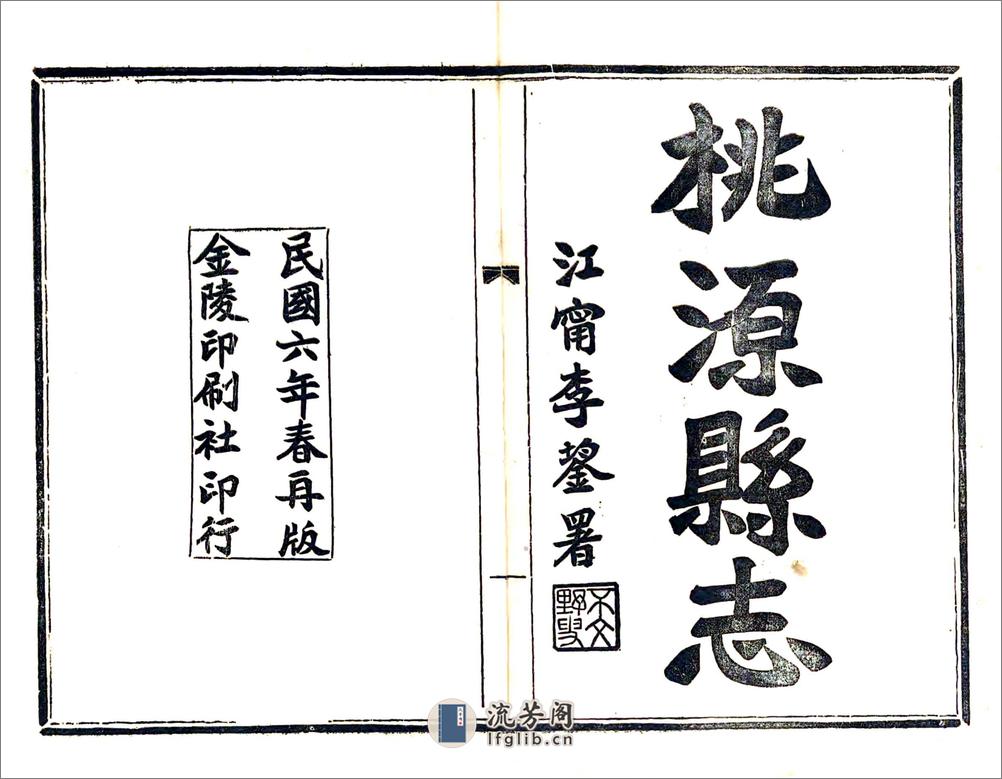 桃源縣志
江甯李鋆署
不文野叟
民國六年春再版
金陵印刷社印行
流芳阁
lfglib.cn